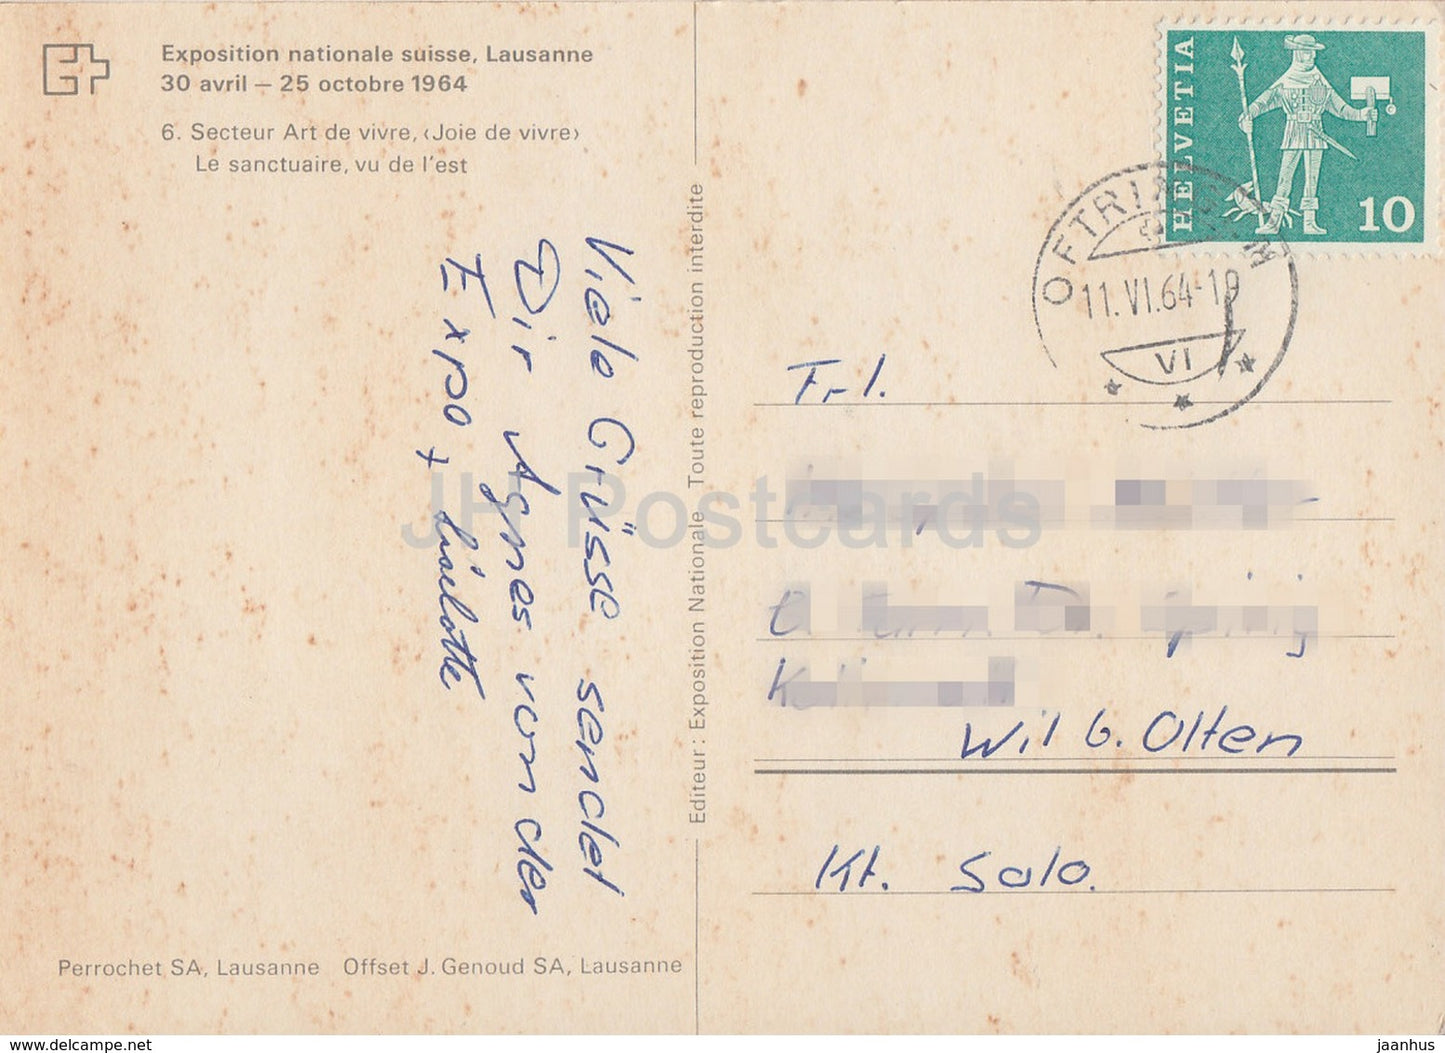 Exposition nationale suisse, Lausanne
30 avril – 25 octobre 1964
6. Secteur Art de vivre, ‹Joie de vivre›
Le sanctuaire, vu de l'est
Viele Grüsse sendet
Dir Agnes von der
Expo, + Liselotte
Editeur: Exposition Nationale Toute reproduction interdite
Perrochet SA, Lausanne Offset J. Genoud SA, Lausanne
HELVETIA
10
OFTRINGEN
11.VI.64-19
VI
Frl.
Wil b. Olten
Kt. Solo.
JH Postcards
www.delcampe.net
jaanhus